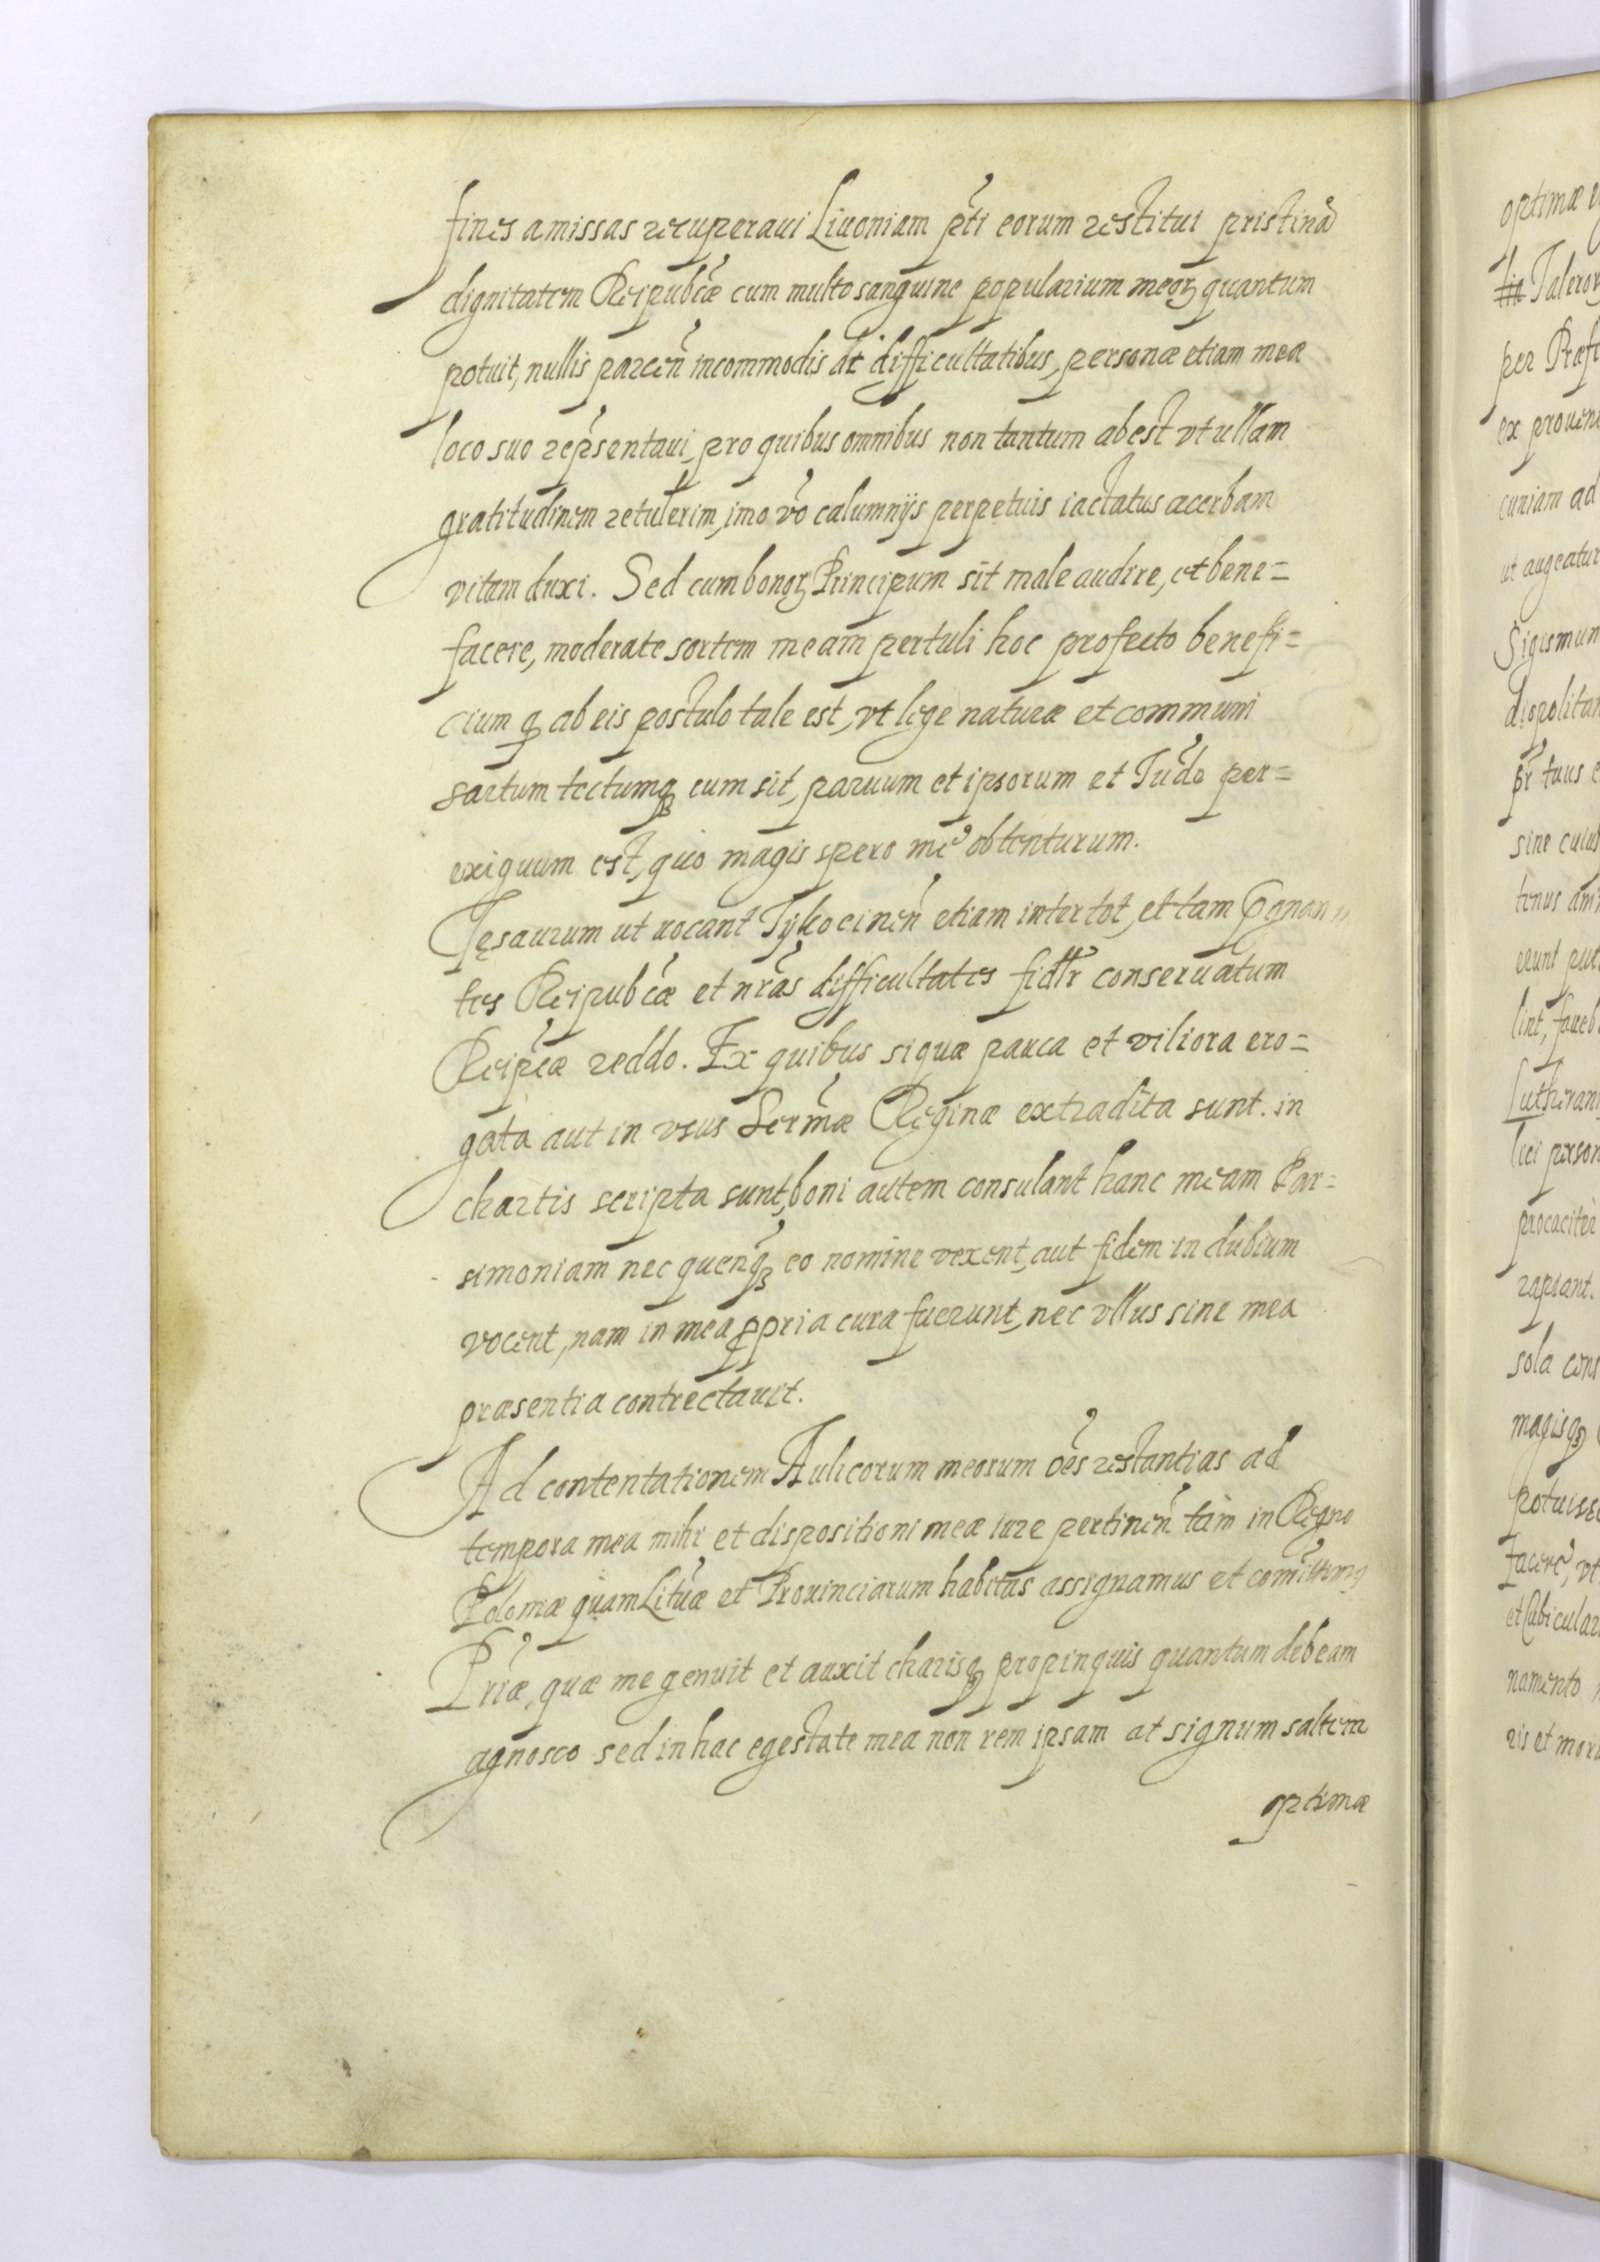 fines amissas recuperaui Liuoniam pti eorum restitui pristinā
dignitatem Reipubcæ cum multo sanguine popularium meorꝫ quantum
potuit, nullis parcen̄ incommodis ac difficultatibus, personæ etiam meæ
loco suo repsentaui, pro quibus omnibus non tantum abest vt ullam
gratitudinem retulerim, imo vō calumnijs perpetuis iactatus acerbam
vitam duxi. Sed cum bonorꝫ Principum sit male audire, et bene=
facere, moderate sortem meam pertuli hoc profecto benefi=
cium ꝙ ab eis postulo tale est, vt lege naturæ et communi
sartum tectumqꝫ cum sit, paruum et ipsorum et Iudo per=
exiguum est, quo magis spero me obtenturum.
Tęsaurum ut uocant Tykocinen̄ etiam inter tot, et tam
tes Reipubcæ et nrās difficultates fidlr conseruatum
Reipcæ reddo. Ex quibus siquæ pauca et viliora ero=
gata aut in vsus Sermæ Reginæ extradita sunt. in
chartis scripta sunt, boni autem consulant hanc meam Par=
simoniam nec quenqꝫ eo nomine vexent, aut fidem in dubium
vocent, nam in mea ꝓpria cura fuerunt, nec vllus sine mea
præsentia contrectauit.
Ad contentationem Aulicorum meorum oēs restantias ad
tempora mea mihi et dispositioni meæ iure pertinen̄ tam in Regno
Poloniæ quam Lituæ et Prouinciarum habitas assignamus et
Priæ, quæ me genuit et auxit charisqꝫ propinquis quantum debeam
agnosco sed in hac egestate mea non rem ipsam at signum saltem
optimæ
optimæ
Taleror
per Præf
ex prouen
cuniam ad
ut augeatur
Sigismun
diopolitan
pr tuus e
sine cuius
tenus
erunt
lint, faueb
Lutherani
procaciter
rapiant.
sola cons
magisqꝫ
facere, vt
et Cubicular
namento
ris et mor